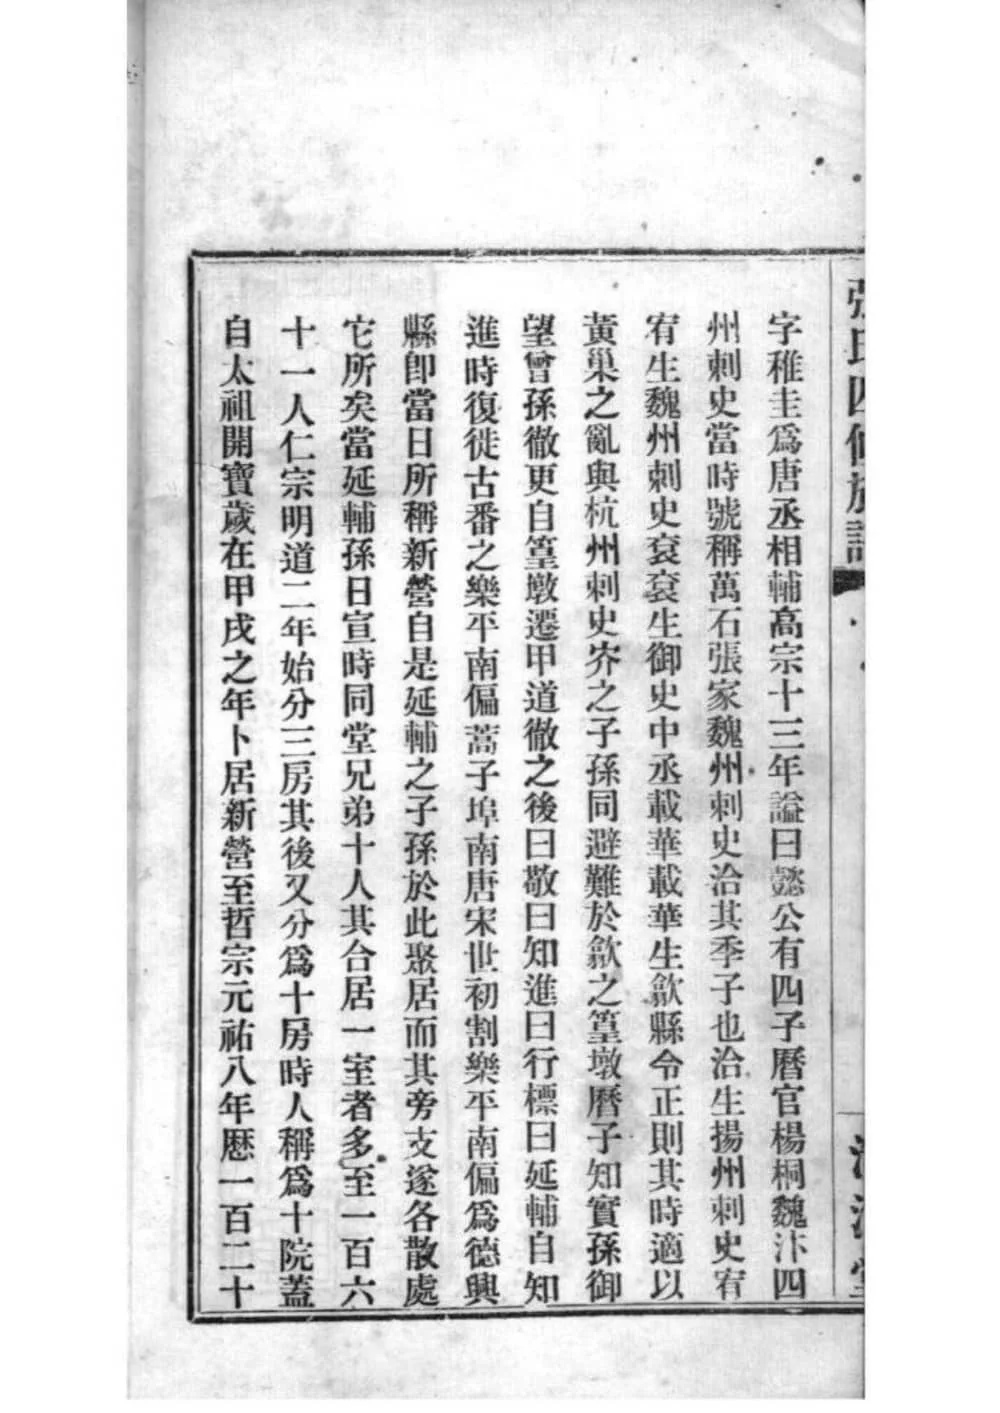 張氏四修族譜
字稚圭爲唐丞相輔高宗十三年謚曰懿公有四子曆官楊桐魏汴四
州刺史當時號稱萬石張家魏州刺史洽其季子也洽生揚州刺史宥
宥生魏州刺史袞袞生御史中丞載華載華生歙縣令正則其時適以
黃巢之亂與杭州刺史峹之子孫同避難於歙之篁墩曆子知實孫御
望曾孫徹更自篁墩遷甲道徹之後曰敬曰知進曰行標曰延輔自知
進時復徙古番之樂平南偏蒿子埠南唐宋世初割樂平南偏爲德興
縣卽當日所稱新營自是延輔之子孫於此聚居而其旁支遂各散處
它所矣當延輔孫日宣時同堂兄弟十人其合居一室者多至一百六
十一人仁宗明道二年始分三房其後又分爲十房時人稱爲十院蓋
自太祖開寶歲在甲戌之年卜居新營至哲宗元祐八年歷一百二十